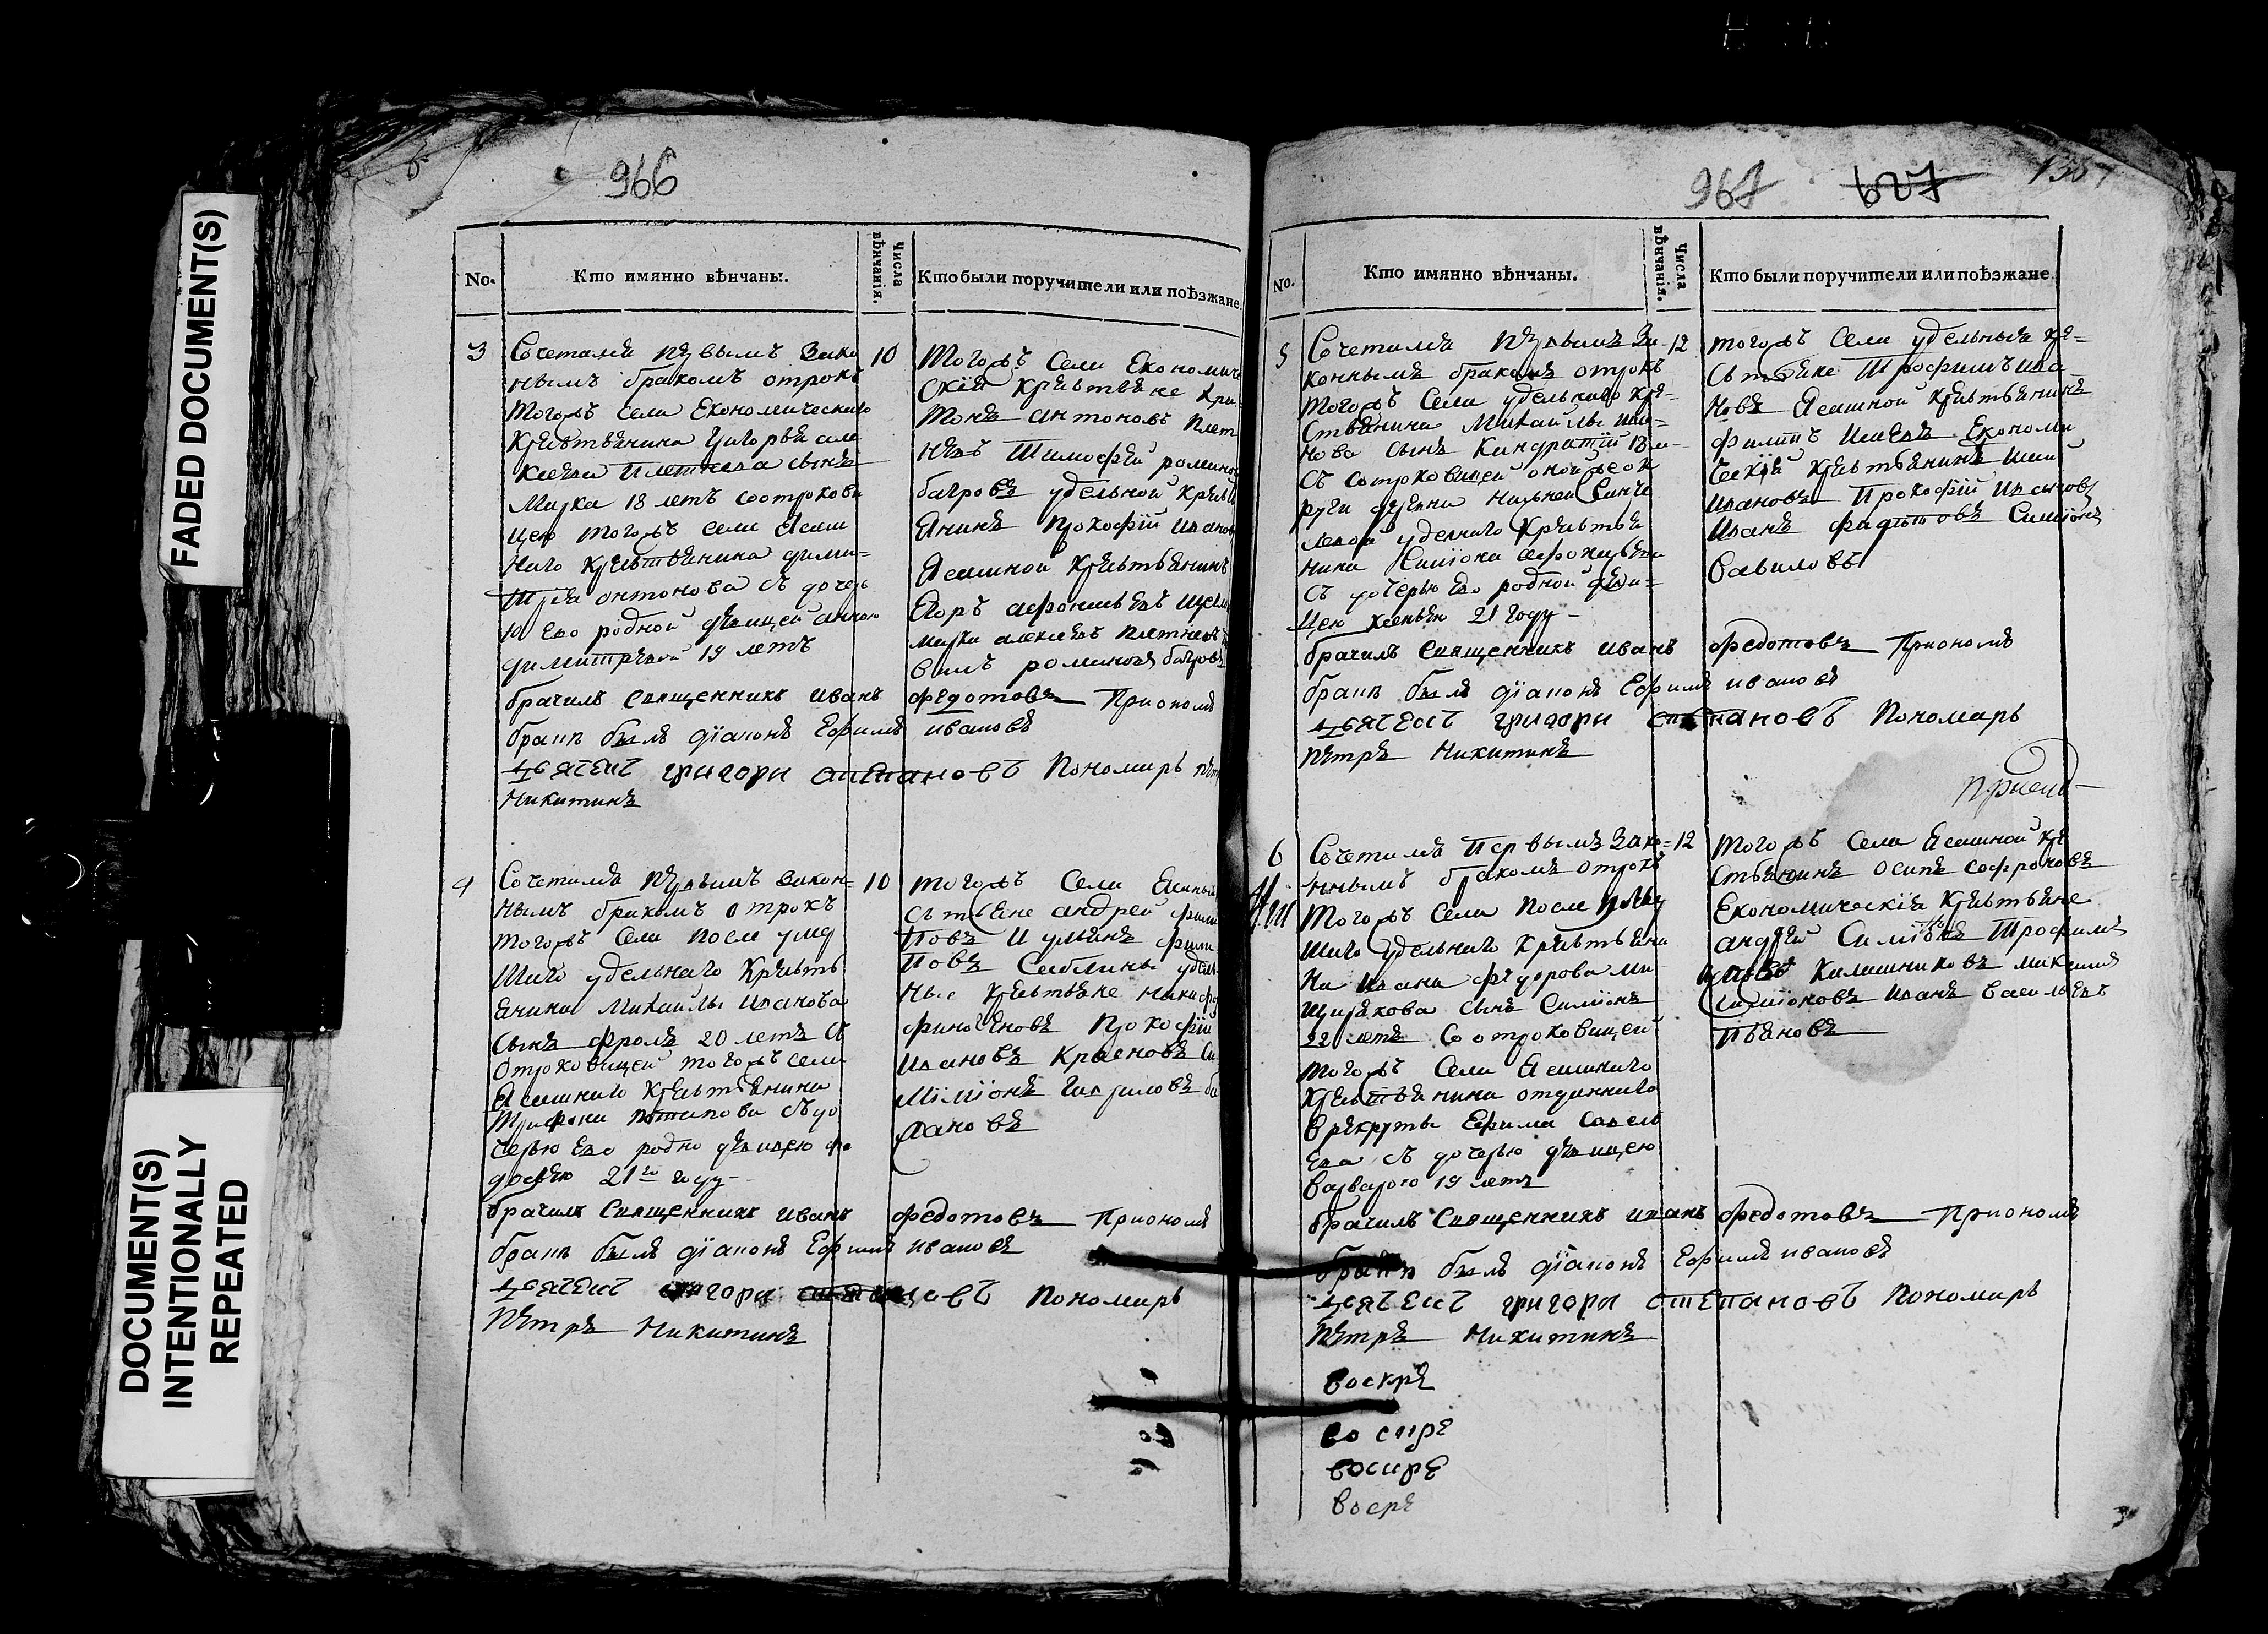 FADED DOCUMENT(S)
DOCUMENT(S)
INTENTIONALLY
REPEATED
966
No.
Кто имянно вѣнчаны.
Числа
вѣнчанія.
Кто были поручители или поѣзжане.
3
Сочетался первымъ зако
ннымъ бракомъ отрокъ
тогожъ села Економическаго
крестьянина Григорья але
ксеева Плетнева сынъ
Марка 18 летъ соотрокови
цею тогожъ села Ясаш
наго крестьянина дими=
трія антонова съ дочерь
ю ево родной девицей анною
димитревой 19 летъ
10
Тогожъ Села Економиче
скія крестьяне
антоновъ Плет
невъ Тимофѣй романов
багровъ удельной крестья
янинъ прокофій иванов
Ясашной крестьянинъ
Егоръ афонасьевъ
марка алексеевъ плетневъ
романовъ багровъ
брачилъ священникъ иванъ федотовъ При ономъ
бракѣ былъ діаконъ Ефимъ ивановъ
григори степановъ Пономарь петръ
Никитинъ
4
Сочетался первымъ закон=
нымъ бракомъ отрокъ
тогожъ села после умер
шаго удельнаго крестья
янина Михаилы Иванова
сынъ фролъ 20 летъ съ
отроковицей тогожъ села
Ясашнаго крестьянина
Трифона потапова съ до
черью ево родно девицею фе
досьею 21го году
10
тогожъ Села
андрей фили
повъ И ульянъ фили
повъ Саблины удель
ные крестьяне
Прокофій
Ивановъ Красновъ Си
міонъ Гавриловъ
брачилъ священникъ иванъ федотовъ При ономъ
бракѣ былъ діаконъ Ефимъ ивановъ
григори степановъ Пономарь
Петръ Никитинъ
967
627
1367
No.
Кто имянно вѣнчаны.
Числа
вѣнчанія.
Кто были поручители или поѣзжане.
5
Сочетался первымъ За=
коннымъ бракомъ отрокъ
тогожъ Села удельнаго кре=
стьянина Михаилы Ива=
нова сынъ Кандратій 18 ле
съ отроковицей оной
деревни
удельнаго крестья
нина Симіона
съ дочерью ево родной деви=
цею 21 году
12
тогожъ Села удельныя кре=
стьяне Трофимъ Ива
новъ Ясашной крестьянинъ
филипъ Економи
ческій крестьянинъ
ивановъ Прокофій
Иванъ Симіонъ
Савиловъ
брачилъ священникъ иванъ федотовъ При ономъ
бракѣ былъ діаконъ Ефимъ ивановъ
григори степановъ Пономарь
Петръ Никитинъ
6
Сочетался Первымъ Зако=
ннымъ бракомъ отрокъ
тогожъ Села после умер
шаго удельнаго крестьяни
на Ивана федорова
сынъ Симіонъ
22 летъ Со отроковицей
тогожъ Села Ясашнаго
крестьянина отданнаго
в рекруты Ефима Савель
ева съ дочерью девицею
варварою 19 летъ
12
тогожъ Села Ясашной кре
стьянинъ Осипъ Софроновъ
Економическія крестьяне
андрей Симіоновъ Трофимъ
Калашниковъ Максимъ
Симіоновъ Иванъ Васильевъ
Пьяновъ
брачилъ Священникъ иванъ федотовъ При ономъ
бракѣ былъ діаконъ Ефимъ ивановъ
григори степановъ Пономарь
Петръ Никитинъ
воскре
воскре
воскре
воскре